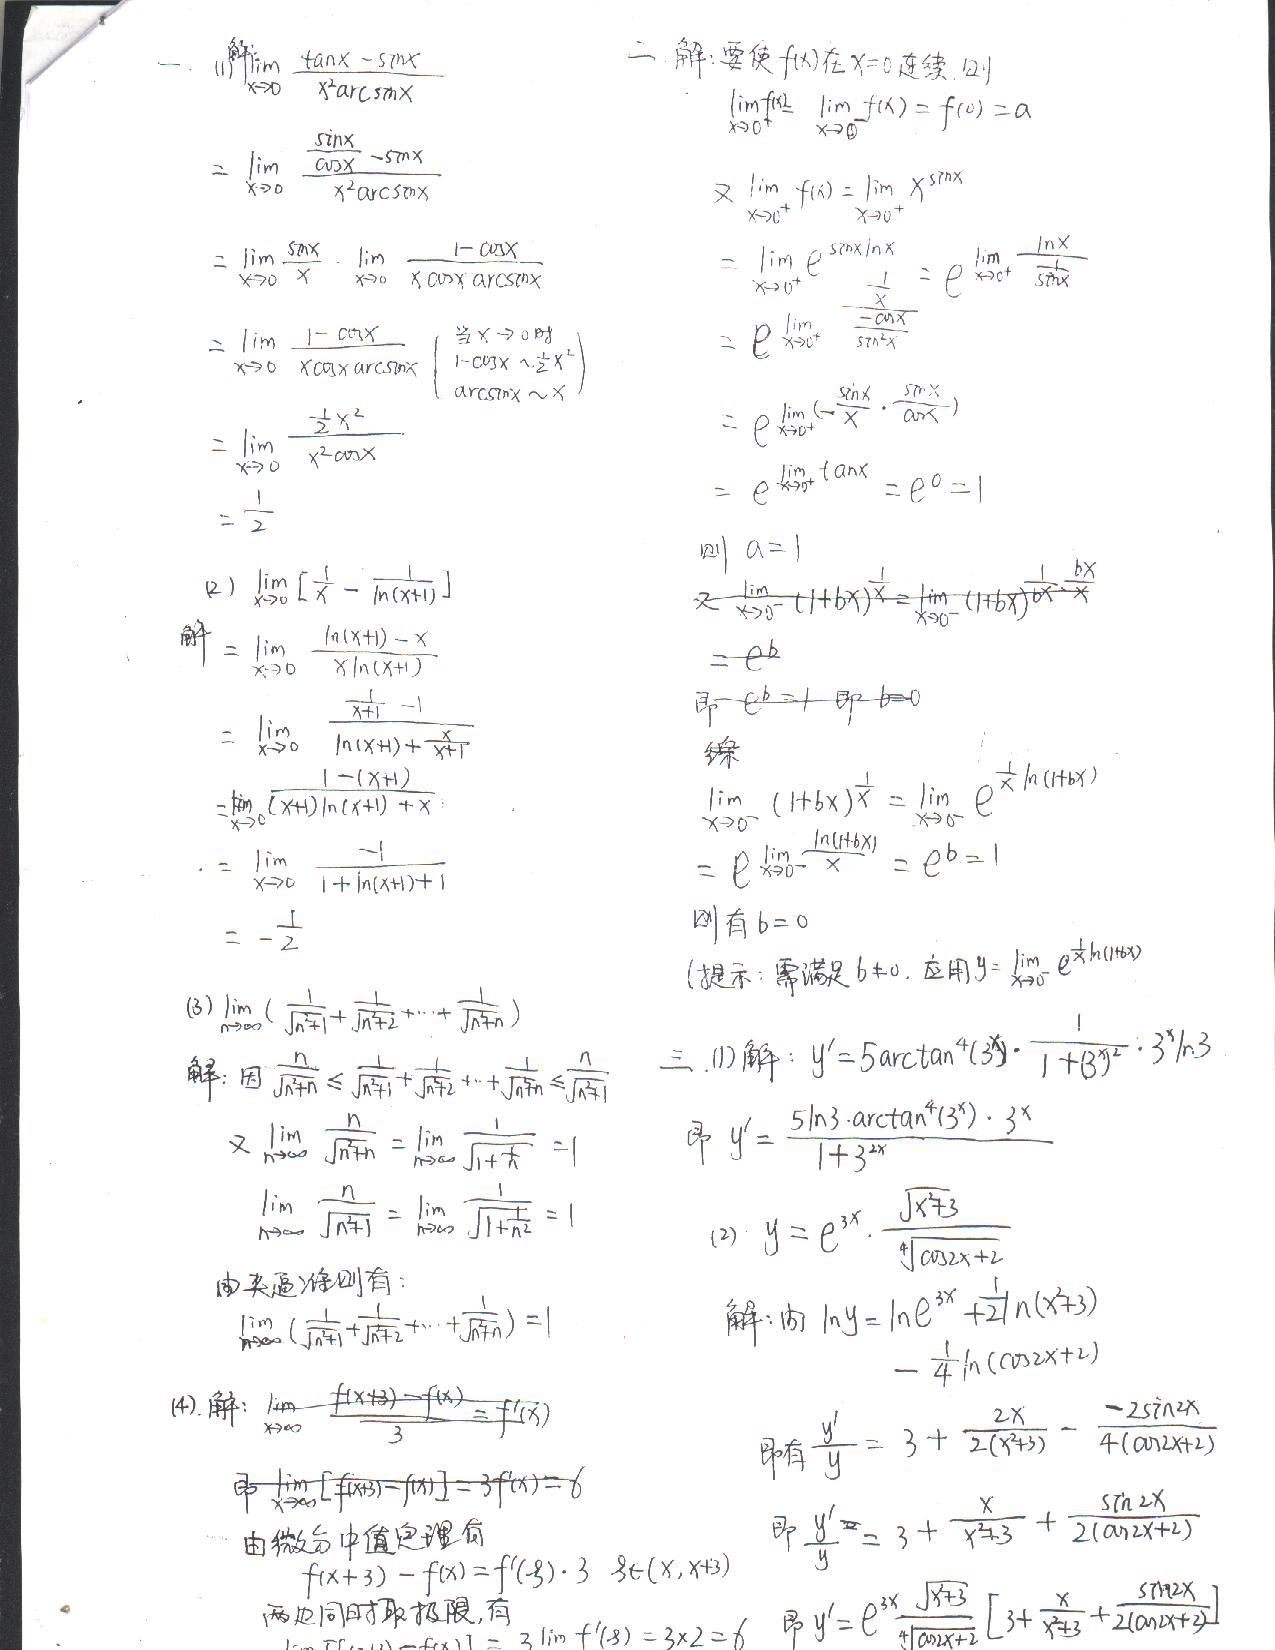 一 (1) 解 lim x→0 (tanx - sinx)/(x²arcsinx)
= lim x→0 (sinx/cosx - sinx)/(x²arcsinx)
= lim x→0 sinx/x · lim x→0 (1-cosx)/(x cosx arcsinx)
= lim x→0 (1-cosx)/(x cosx arcsinx) (当x→0时 1-cosx ~ ½x² arcsinx ~ x)
= lim x→0 (½x²)/(x²cosx)
= 1/2
(2) lim x→0 [1/x - 1/ln(x+1)]
解 = lim x→0 (ln(x+1) - x)/(x ln(x+1))
= lim x→0 (1/(x+1) - 1)/(ln(x+1) + x/(x+1))
= lim x→0 (1-(x+1))/((x+1)ln(x+1) + x)
= lim x→0 -1/(1+ln(x+1)+1)
= -1/2
(3) lim n→∞ (1/√(n²+1) + 1/√(n²+2) + ··· + 1/√(n²+n))
解: 因 n/√(n²+n) ≤ 1/√(n²+1) + 1/√(n²+2) + ··· + 1/√(n²+n) ≤ n/√(n²+1)
又 lim n→∞ n/√(n²+n) = lim n→∞ 1/√(1+1/n) = 1
lim n→∞ n/√(n²+1) = lim n→∞ 1/√(1+1/n²) = 1
由夹逼准则有:
lim n→∞ (1/√(n²+1) + 1/√(n²+2) + ··· + 1/√(n²+n)) = 1
(4). 解: lim x→∞ (f(x+3) - f(x))/3 = f'(x)
即 lim x→∞ [f(x+3) - f(x)] = 3f'(x) = 6
由微分中值定理有
f(x+3) - f(x) = f'(ξ)·3 ξ∈(x, x+3)
两边同时取极限,有
lim [f(x+3) - f(x)] = 3 lim f'(ξ) = 3×2 = 6
二 解: 要使f(x)在x=0连续,则
lim x→0⁺ f(x) = lim x→0⁻ f(x) = f(0) = a
又 lim x→0⁺ f(x) = lim x→0⁺ x^sinx
= lim x→0⁺ e^(sinx lnx) = e^(lim x→0⁺ lnx/(1/sinx))
= e^(lim x→0⁺ (1/x)/(-cosx/sin²x))
= e^(lim x→0⁺ (-sinx/x · sinx/cosx))
= e^(lim x→0⁺ tanx) = e⁰ = 1
则 a=1
又 lim x→0⁻ (1+bx)^(1/x) = lim x→0⁻ (1+bx)^(1/bx · bx/x)
= e^b
即 e^b = 1 即 b=0
lim x→0⁻ (1+bx)^(1/x) = lim x→0⁻ e^(1/x ln(1+bx))
= e^(lim x→0⁻ ln(1+bx)/x) = e^b = 1
则有 b=0
(提示: 需满足b≠0. 应用y= lim x→0⁻ e^(1/x ln(1+bx))
三. (1) 解: y' = 5arctan⁴(3^x) · 1/(1+(3^x)²) · 3^x ln3
即 y' = (5ln3·arctan⁴(3^x)·3^x)/(1+3^2x)
(2). y = e^3x · √(x²+3)/⁴√(cos2x+2)
解: 由 lny = lne^3x + ½ln(x²+3)
- ¼ln(cos2x+2)
即有 y'/y = 3 + 2x/(2(x²+3)) - (-2sin2x)/(4(cos2x+2))
即 y'/y = 3 + x/(x²+3) + sin2x/(2(cos2x+2))
即 y' = e^3x √(x²+3)/⁴√(cos2x+2) [3 + x/(x²+3) + sin2x/(2(cos2x+2))]